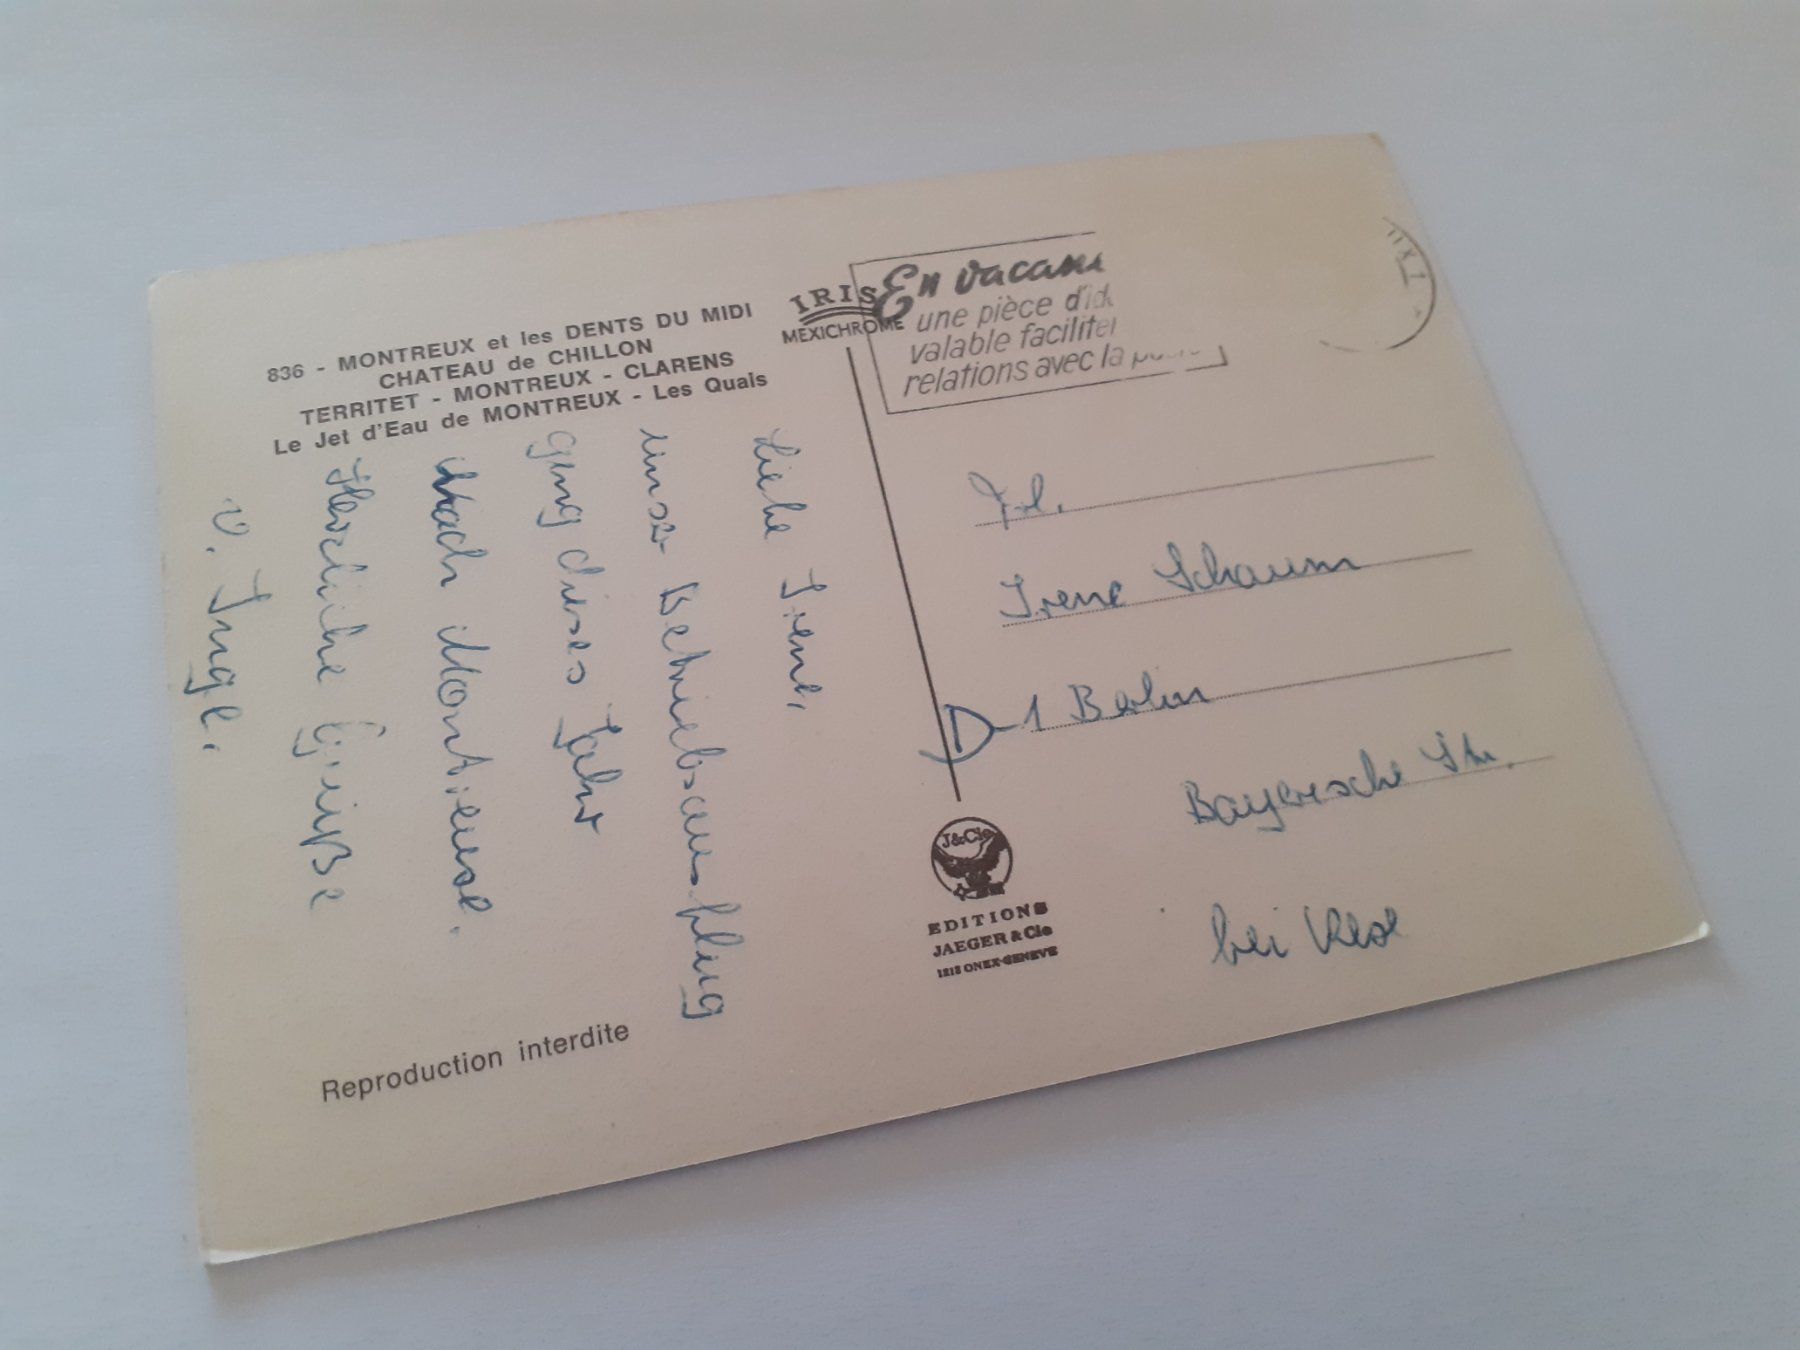 836 - MONTREUX et les DENTS DU MIDI
CHATEAU de CHILLON
TERRITET - MONTREUX - CLARENS
Le Jet d'Eau de MONTREUX - Les Quais
IRIS
MEXICHROME
En vacan
une pièce d'id
valable faciliter
relations avec la
Liebe Irene,
unser Betriebsausflug
ging dieses Jahr
nach Montreuse.
Herzliche Grüße
v. Inge.
Frl.
Irene Schaum
D-1 Berlin
Bayerische Str.
bei
J&Cie
EDITIONS
JAEGER & Cie
1213 ONEX-GENEVE
Reproduction interdite